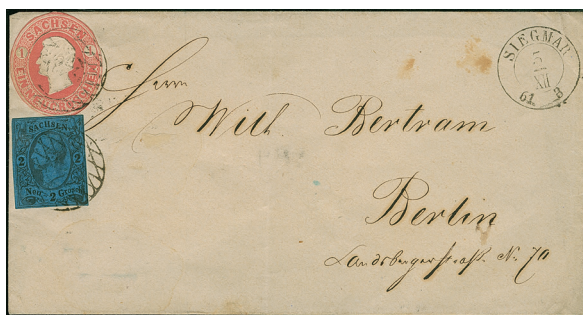 SACHSEN
EIN NEUGROSCHEN
SACHSEN
2 2
Neu-2 Grosch
SIEGMAR
5
XII
61 3
Herrn
Wilh. Bertram
Berlin
Landsbergerstraß. No. 70